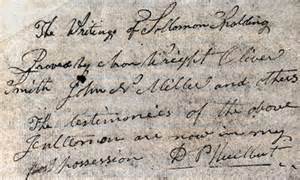 The Writings of Solomon Spalding
Proved by Aron Wright Oliver
Smith John N. Miller and others
The testimonies of the above
Gentlemen are now in my
possession D P Hurlbut